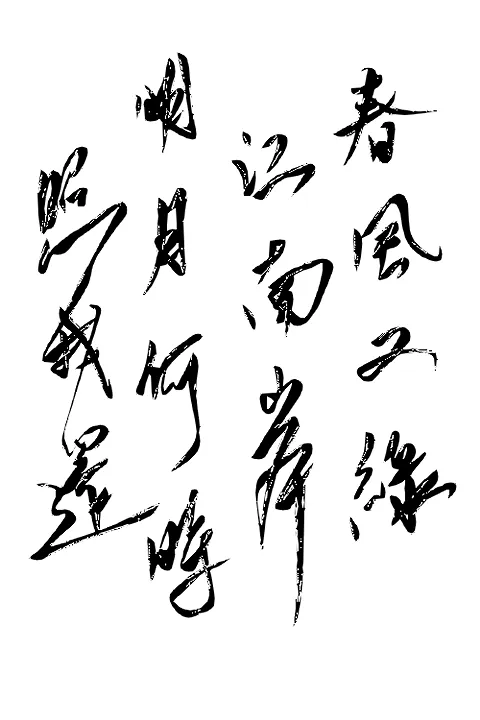 春风又绿
江南岸
明月何时
照我还